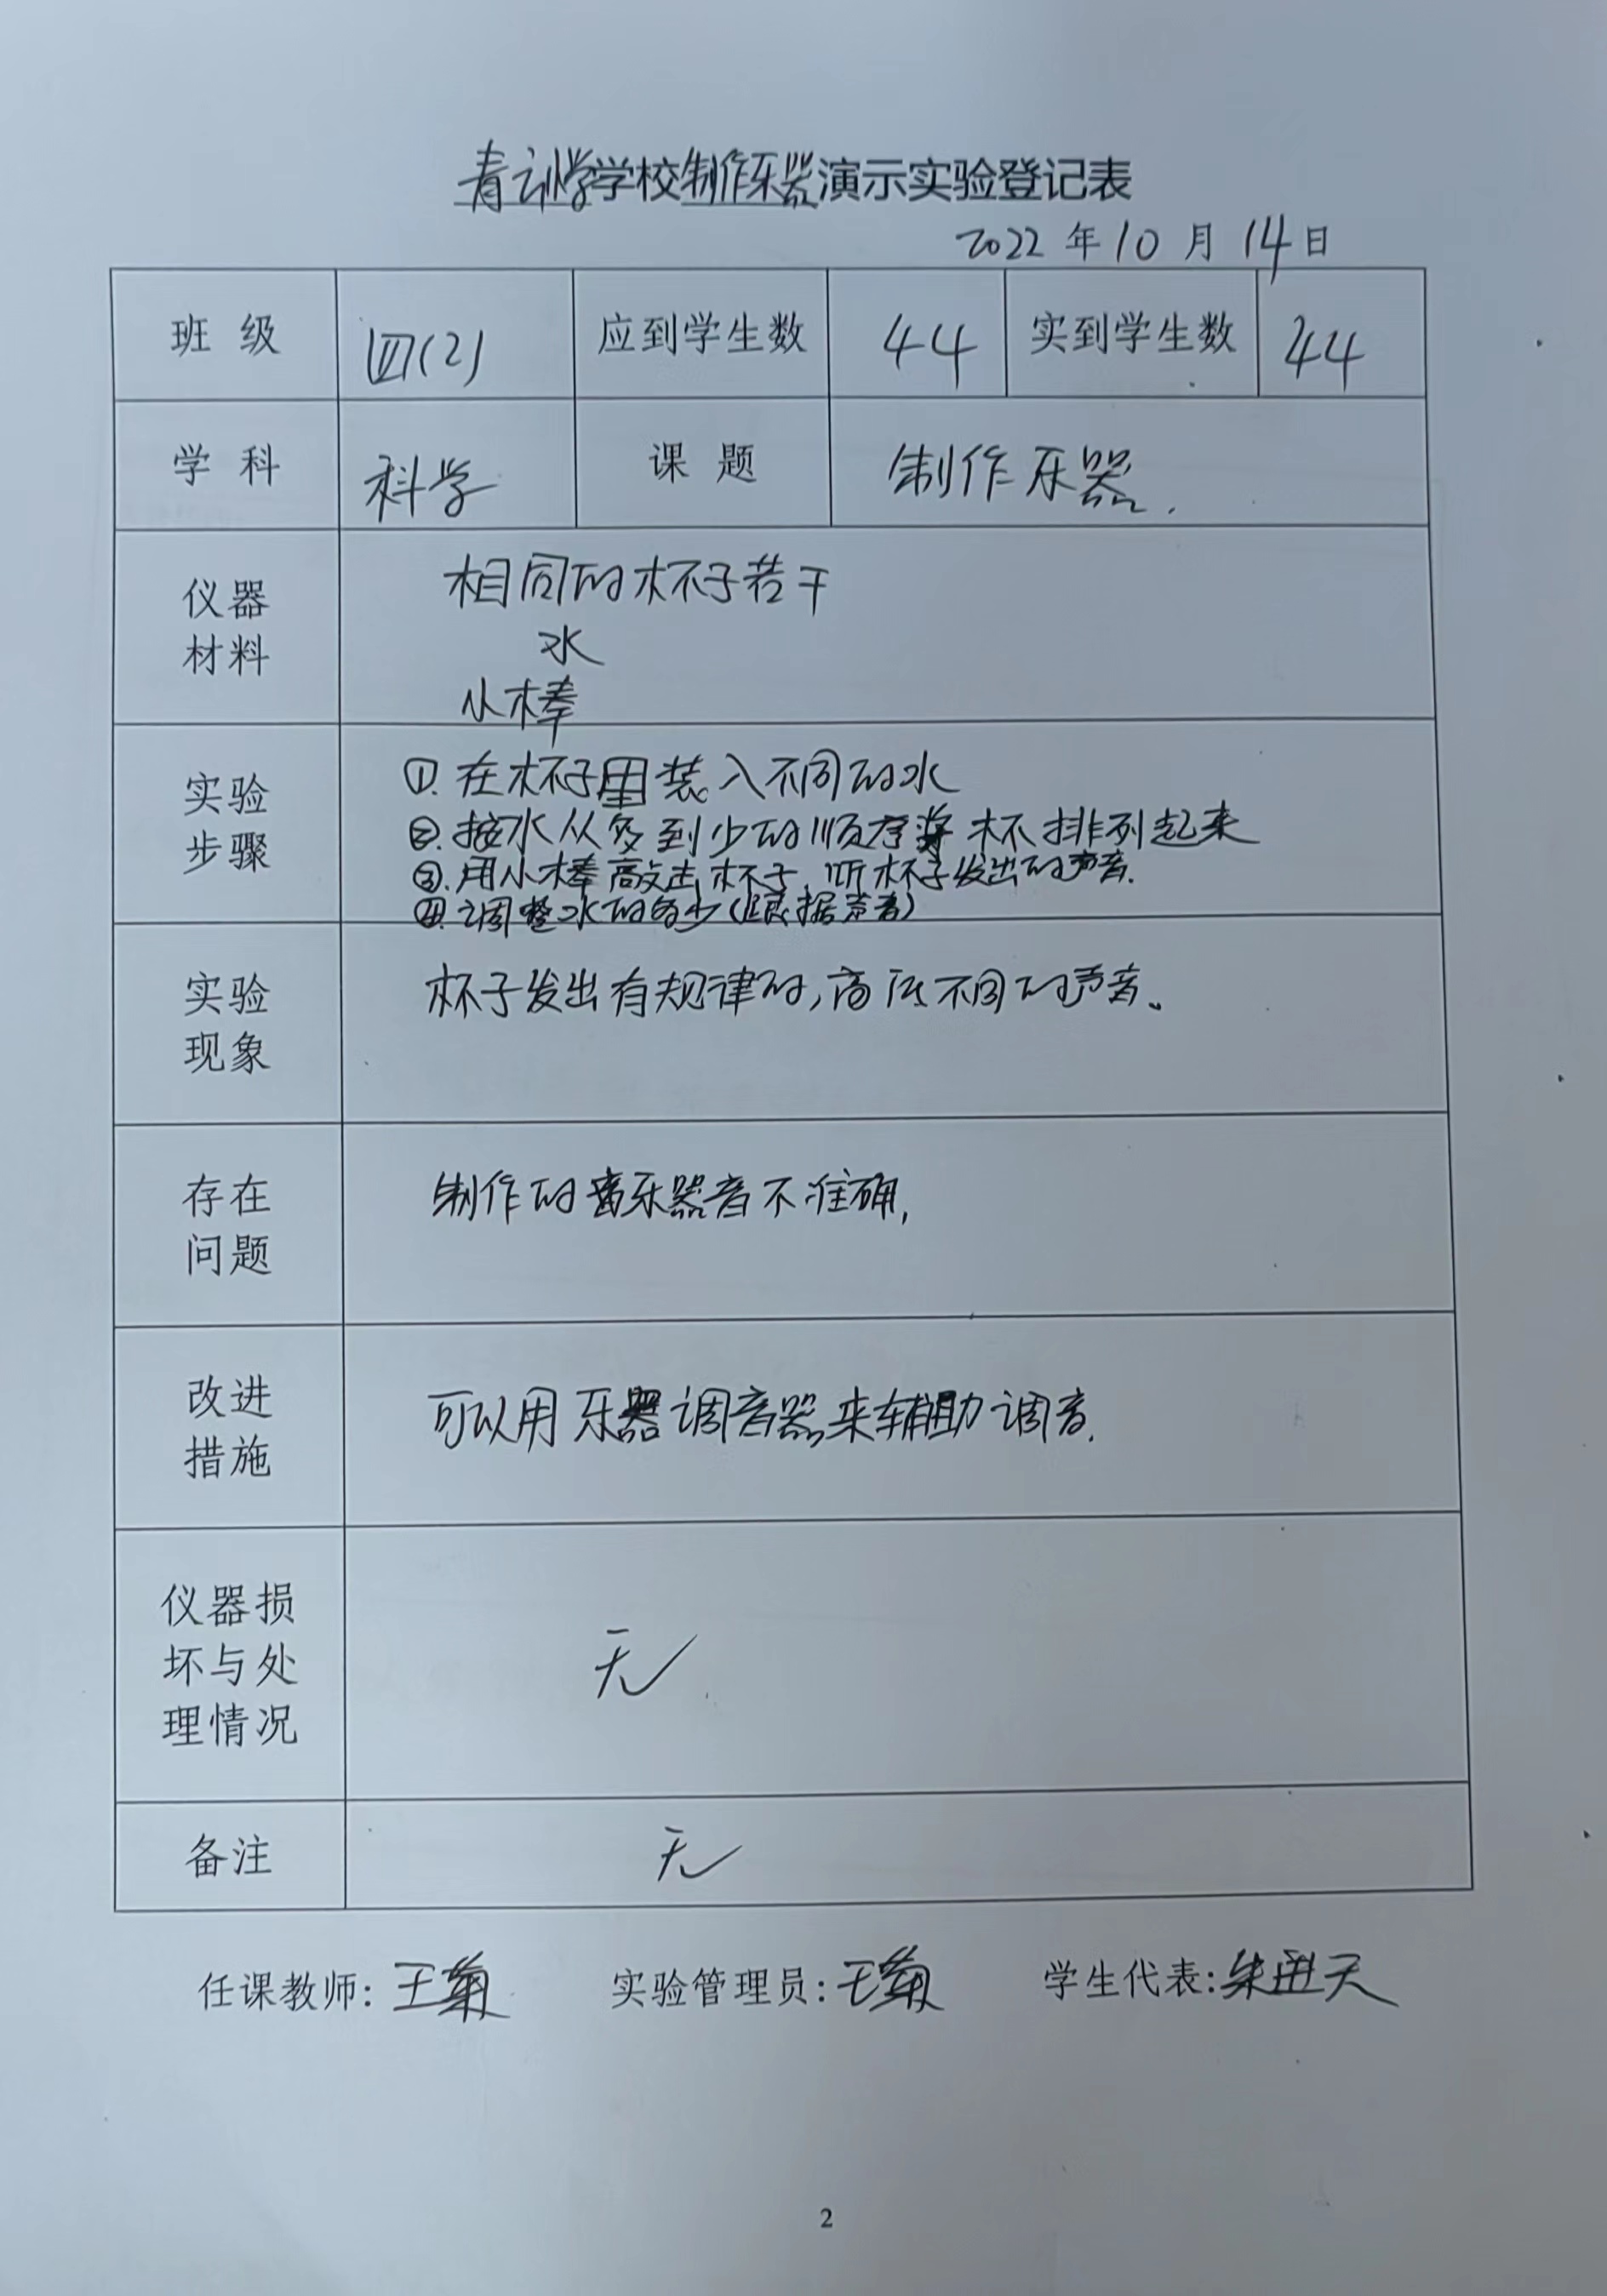 青云小学学校制作乐器演示实验登记表
2022年10月14日
班级 四(2) 应到学生数 44 实到学生数 44
学科 科学 课题 制作乐器.
仪器
材料
相同的杯子若干
水
小棒
实验
步骤
①.在杯子里装入不同的水
②.按水从多到少的顺序将杯排列起来
③.用小棒敲击杯子,听杯子发出的声音.
④.调整水的多少(根据声音)
实验
现象
杯子发出有规律的,高低不同的声音。
存在
问题
制作的音乐器音不准确,
改进
措施
可以用乐器调音器来辅助调音.
仪器损
坏与处
理情况
无
备注
无
任课教师:王菊 实验管理员:王菊 学生代表:朱 天
2